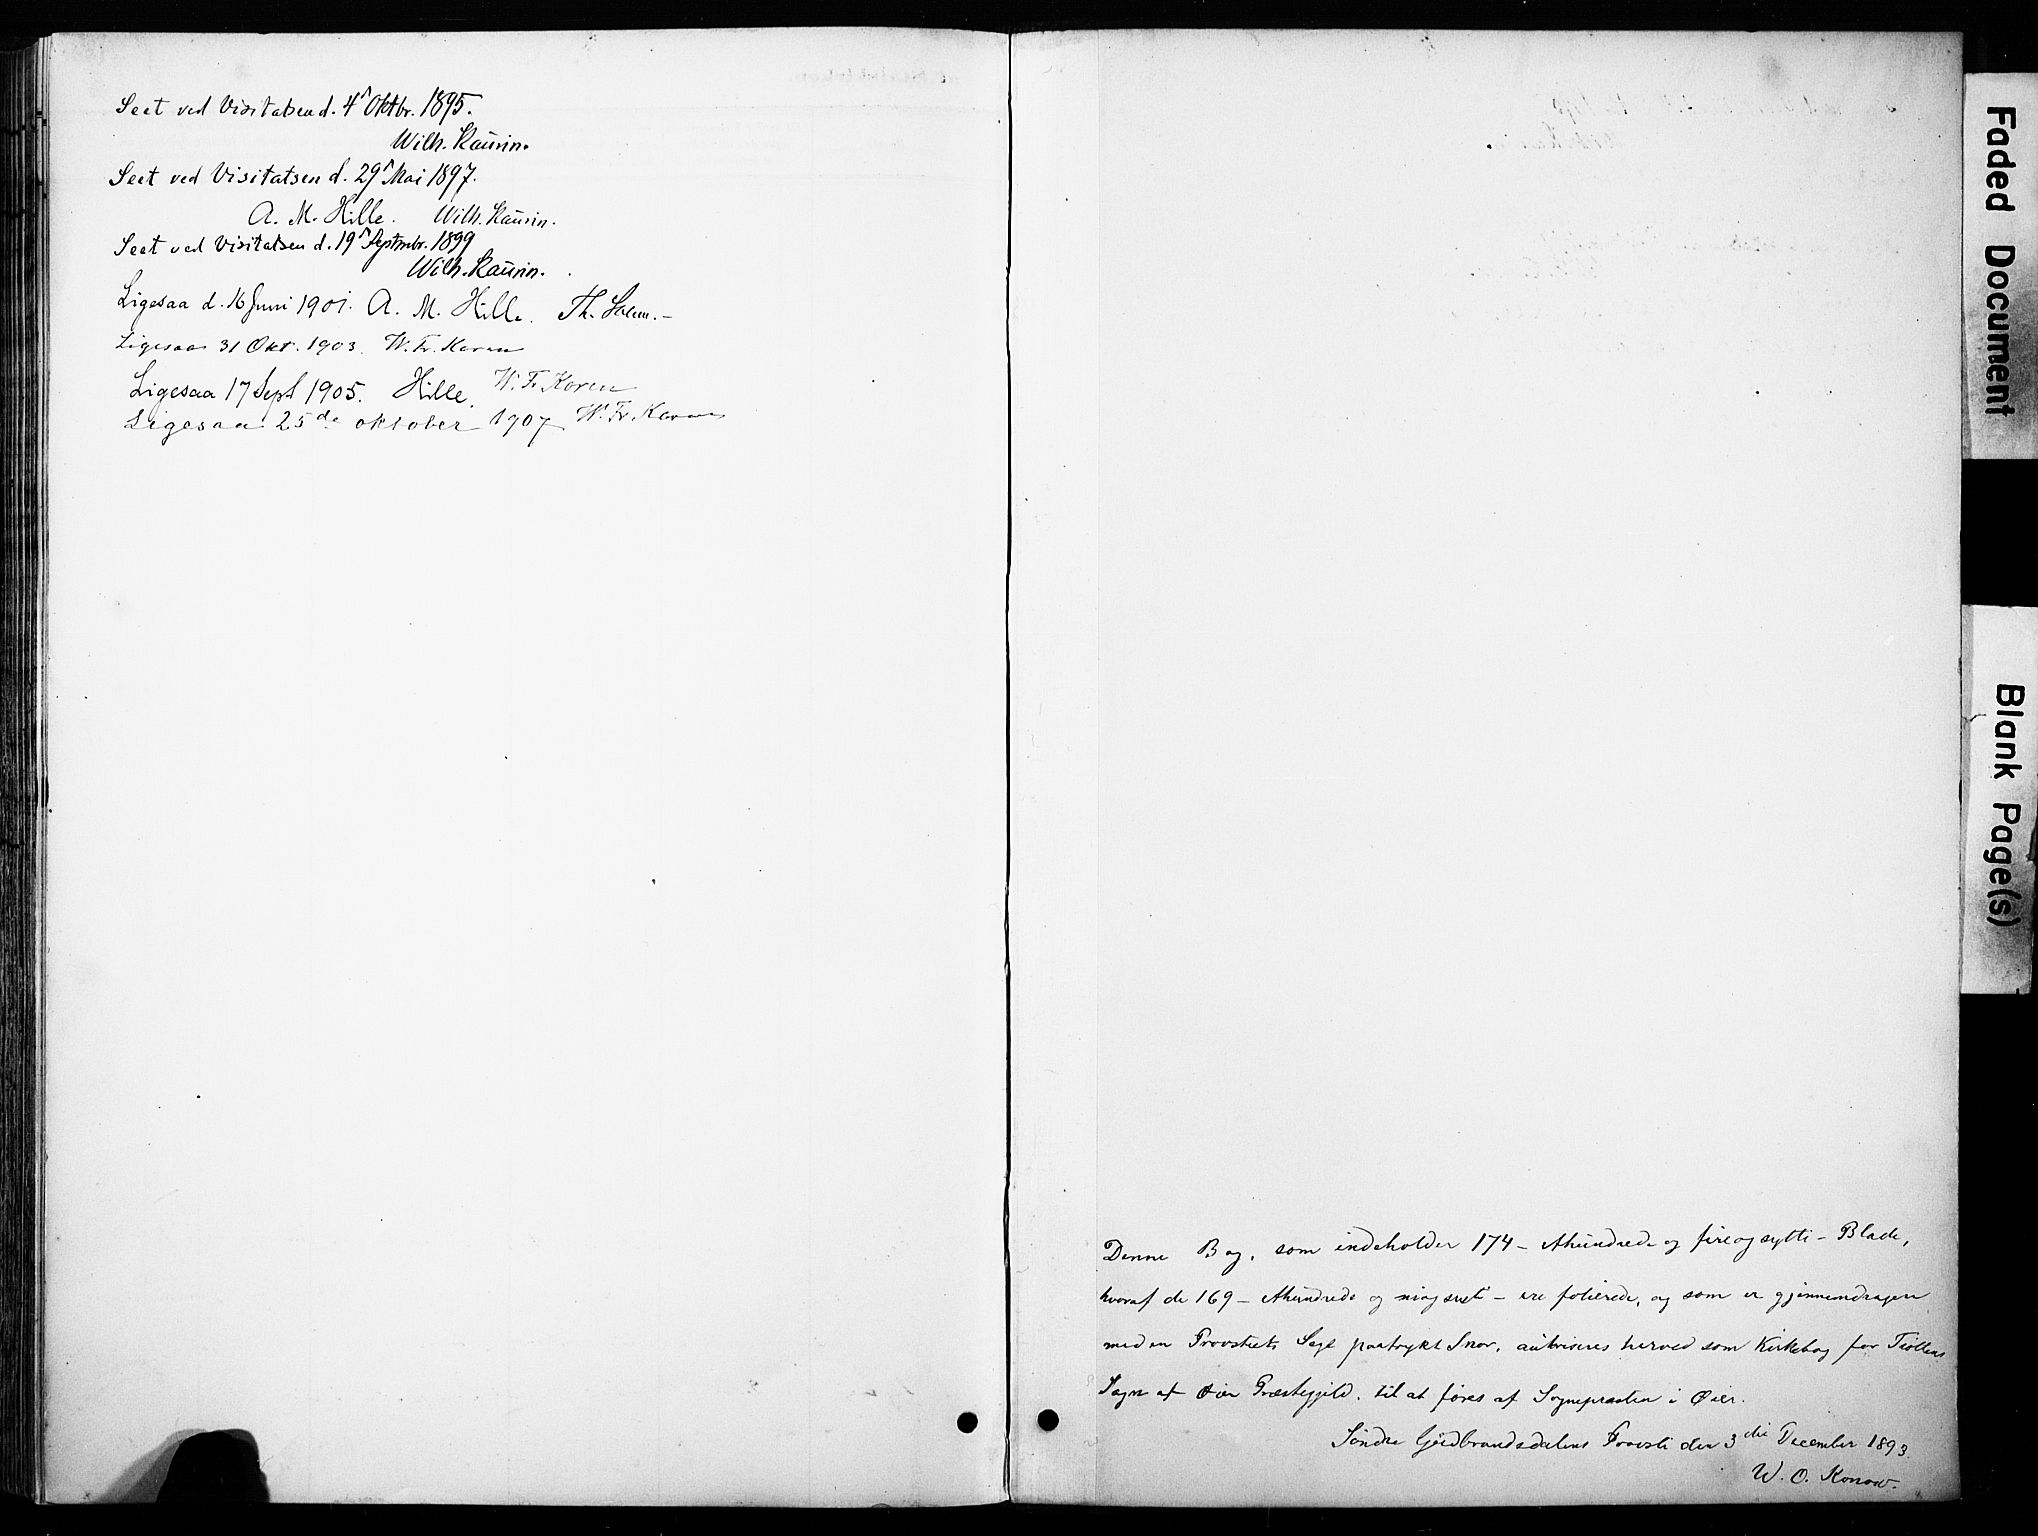 Seet ved Visitatsen d. 4 Oktbr. 1895.
Wilh. Kaurin.
Seet ved Visitatsen d. 29 Mai 1897.
A. M. Hille. Wilh. Kaurin.
Seet ved Visitatsen d. 19 Septmbr. 1899
Wilh. Kaurin.
Ligesaa d. 16 Juni 1901. A. M. Hille. Th.
Ligesaa 31 Okt. 1903. W. Fr. Koren
Ligesaa 17 Sept 1905. Hille. W. Fr. Koren
Ligesaa 25de oktober 1907 W. Fr. Koren
Denne Bog, som indeholder 174 – ethundrede og fireogsytti – Blade,
hvoraf de 169 – ethundrede og niogsexti – ere folierede, og som er gjennemdragen
med en Provstiets Segl paatrykt Snor, autoriseres herved som Kirkebog for
Sogn af Øier Præstegjeld, til at føres af Sognepræsten i Øier.
Søndre Gudbrandsdalens Provsti den 3die December 1893.
W. O. Konow.
Faded Document
Blank Page(s)